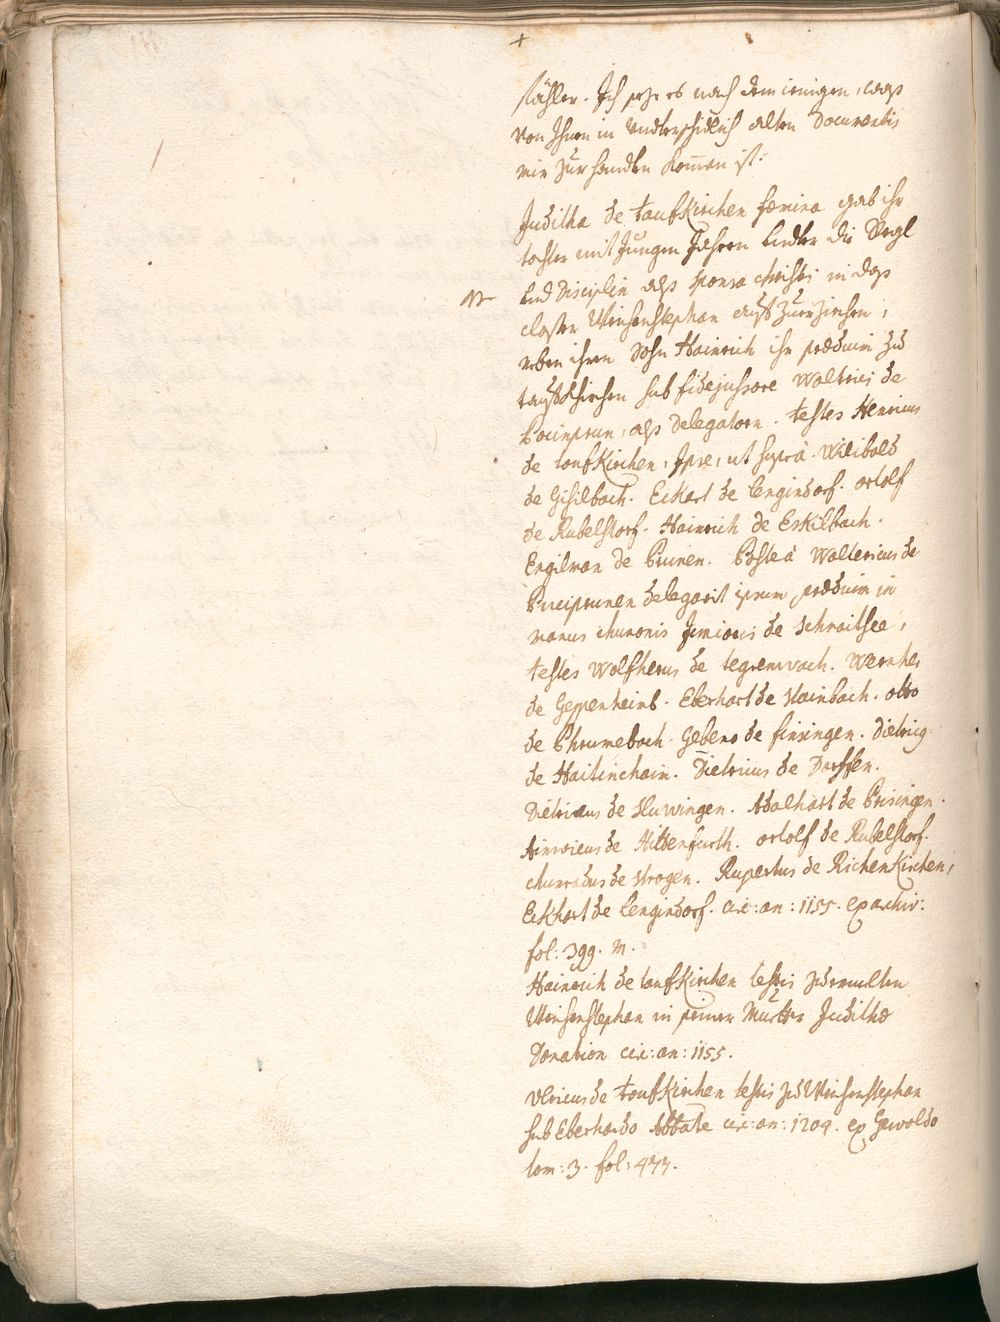 +
stöhler. Ich seze es nach dem ienigen, wass
von Ihnen in underschidlich alten Documentis
mir zur handten kommen ist.
Juditha de taufkirchen fœmina gab ihr
tochter mit Jungen Jahren under die Regl
und Disciplin alss sponsa christi in dass
closter Weihenstephan auf zuerziehen,
neben ihren Sohn Hainrich ihr prædium zu
taufkhirchen sub fidejussore Walterici de
Pruciprun, als Delegatorn. testes Henricus
de taufkirchen, Ipse, ut suprà. Wilibold
de Gisilbach. Eckart de lengindorf. ortolf
de Rubelstorf. Hainrich de Eskilbach.
Engilman de Prunen. Posteà Waltericus de
Pruciprunen delegavit ipsum prædium in
manus chunonis Junioris de schnaitsee,
testes Wolfherus de tegrenwach. Wernher
de Geppenheimb. Eberhart de Stainbach. otto
de Phrumebach. Gebeno de finsingen. Dietricg
de Haitinchaim. Dietricus de Dorffen.
Dietricus de Huwingen. Adalhart de Prisingen.
Ainwicus de Hittenfurth. ortolf de Rubelstorf.
chunradus de Wrogen. Rupertus de Richenkirchen,
Eckhart de lengindorf. circ: an: 1155. ex archiv:
fol: 399. m.
Hainrich de taufkirchen testis zu ermelten
Weihenstephan in seiner Mutter Judithæ
Donation circ: an: 1155.
Ulricus de taufkirchen testis zu Weihenstephan
sub Eberhardo Abbate circ: an: 1204. ex Gewoldo
tom: 3. fol: 477.